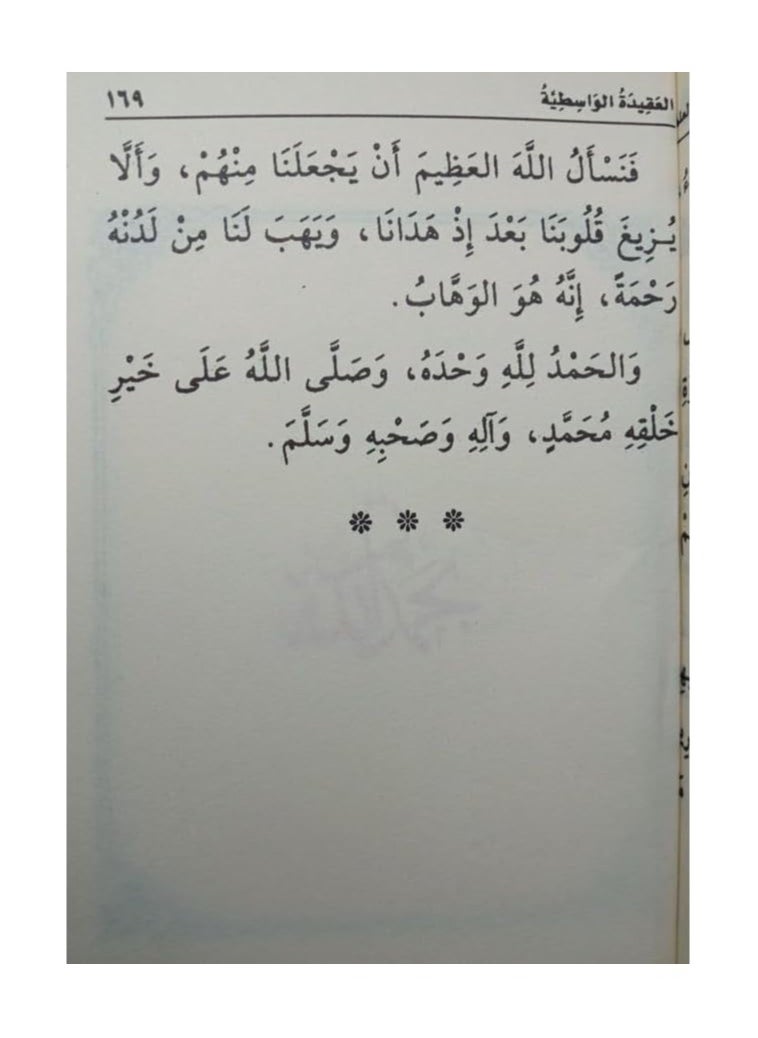 العَقِيدَةُ الوَاسِطِيَّةُ ١٦٩
فَنَسْأَلُ اللَّهَ العَظِيمَ أَنْ يَجْعَلَنَا مِنْهُمْ، وَأَلَّا
يُـزِيغَ قُلُوبَنَا بَعْدَ إِذْ هَدَانَا، وَيَهَبَ لَنَا مِنْ لَدُنْهُ
رَحْمَةً، إِنَّهُ هُوَ الوَهَّابُ.
وَالحَمْدُ لِلَّهِ وَحْدَهُ، وَصَلَّى اللَّهُ عَلَى خَيْرِ
خَلْقِهِ مُحَمَّدٍ، وَآلِهِ وَصَحْبِهِ وَسَلَّمَ.